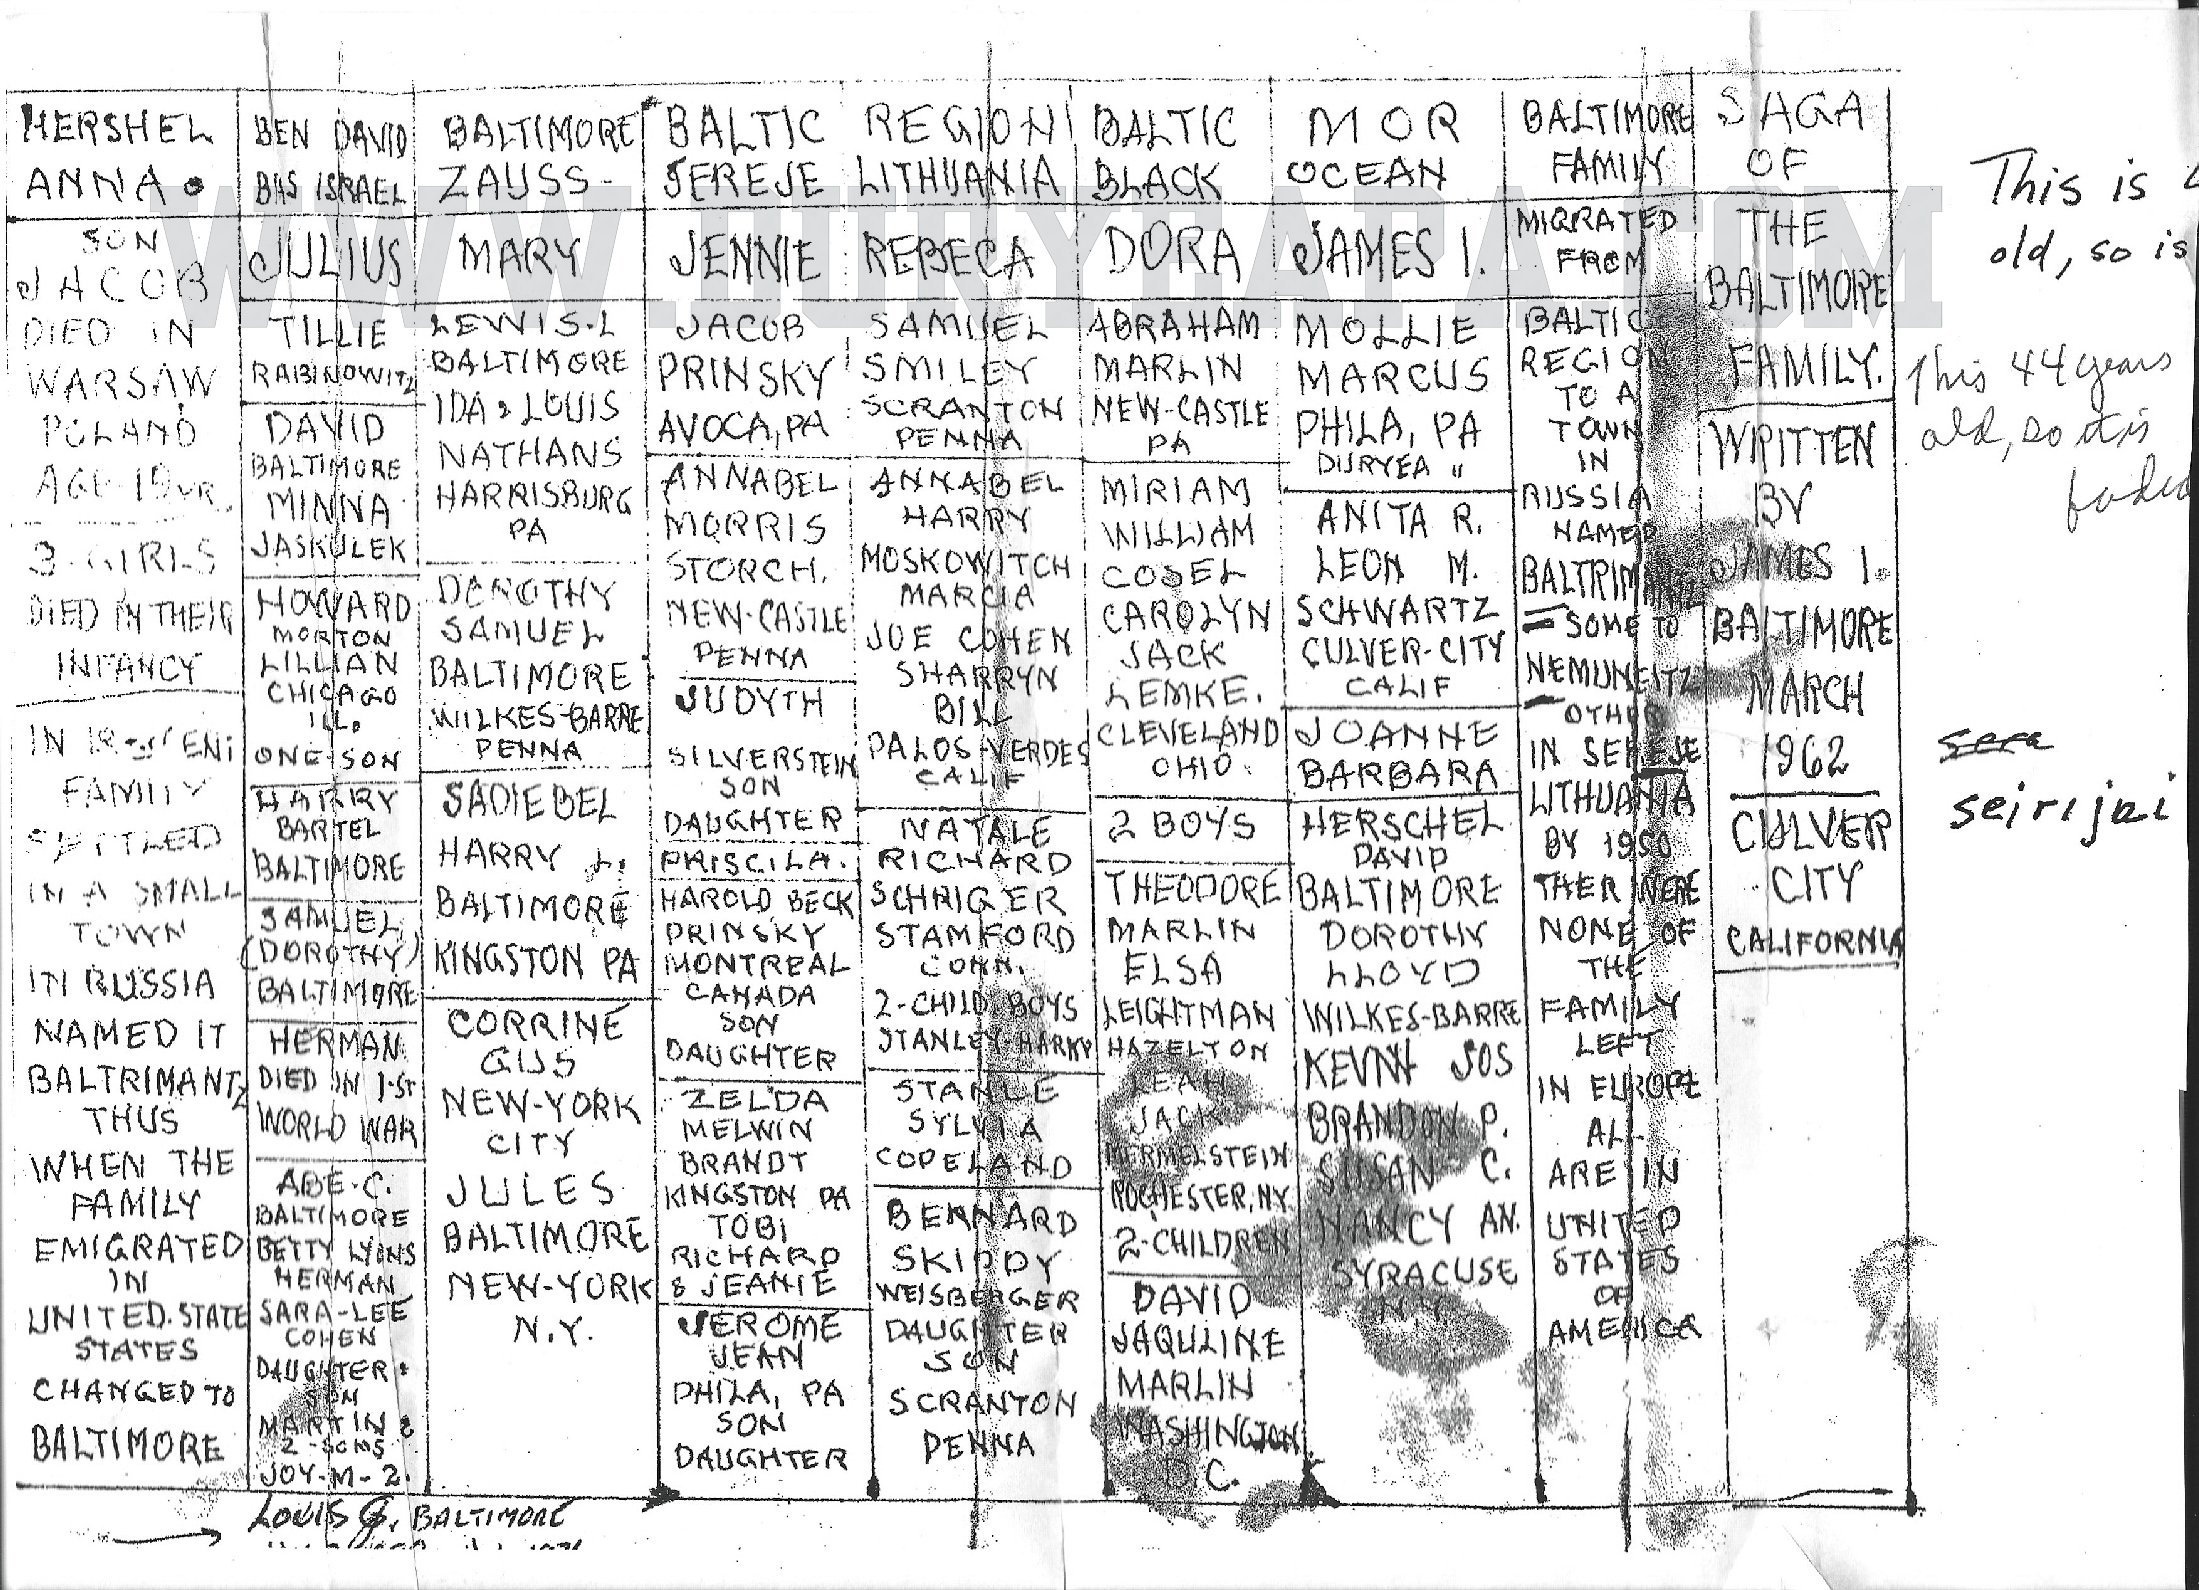 HERSHEL
ANNA.
SON
JACOB
DIED IN
WARSAW
POLAND
AGE 19 YR.
3-GIRLS
DIED IN THEIR
INFANCY
IN
FAMILY
SETTLED
IN A SMALL
TOWN
IN RUSSIA
NAMED IT
BALTRIMANTZ
THUS
WHEN THE
FAMILY
EMIGRATED
IN
UNITED.STATE
STATES
CHANGED TO
BALTIMORE
BEN DAVID
BAS ISRAEL
JULIUS
TILLIE
RABINOWITZ
DAVID
BALTIMORE
MINNA
JASKULEK
HOWARD
MORTON
LILLIAN
CHICAGO
ILL.
ONE-SON
HARRY
BARTEL
BALTIMORE
SAMUEL,
(DOROTHY)
BALTIMORE
HERMAN
DIED IN 1-ST
WORLD WAR
ABE-C.
BALTIMORE
BETTY LYONS
HERMAN
SARA-LEE
COHEN
DAUGHTER &
SON
MARTIN &
2-SONS
JOY-M-2.
LOUIS G. BALTIMORE
BALTIMORE
ZAUSS-
MARY
LEWIS.L
BALTIMORE
IDA & LOUIS
NATHANS
HARRISBURG
PA
DOROTHY
SAMUEL
BALTIMORE
WILKES-BARRE
PENNA
SADIEBEL
HARRY L.
BALTIMORE
KINGSTON PA
CORRINE
GUS
NEW-YORK
CITY
JULES
BALTIMORE
NEW-YORK
N.Y.
BALTIC
SEREJE
JENNIE
JACOB
PRINSKY
AVOCA, PA
ANNABEL
MORRIS
STORCH.
NEW-CASTLE
PENNA
JUDYTH
SILVERSTEIN
SON
DAUGHTER
PRISCILA.
HAROLD BECK
PRINSKY
MONTREAL
CANADA
SON
DAUGHTER
ZELDA
MELWIN
BRANDT
KINGSTON PA
TOBI
RICHARD
& JEANIE
JEROME
JEAN
PHILA, PA
SON
DAUGHTER
REGION
LITHUANIA
REBECA
SAMUEL
SMILEY
SCRANTON
PENNA
ANNABEL
HARRY
MOSKOWITCH
MARCIA
JOE COHEN
SHARRYN
BILL
PALOS-VERDES
CALIF
NATALE
RICHARD
SCHRIGER
STAMFORD
CONN.
2-CHILD BOYS
STANLEY-HARRY
STANLE
SYLVIA
COPELAND
BERNARD
SKIPPY
WEISBERGER
DAUGHTER
SON
SCRANTON
PENNA
BALTIC
BLACK
DORA
ABRAHAM
MARLIN
NEW-CASTLE
PA
MIRIAM
WILLIAM
COSEL
CAROLYN
JACK
LEMKE.
CLEVELAND
OHIO
2 BOYS
THEODORE
MARLIN
ELSA
LEIGHTMAN
HAZELTON
LEAH
JACK
MERMELSTEIN
ROCHESTER, N.Y.
2-CHILDREN
DAVID
JAQULINE
MARLIN
WASHINGTON
D.C.
MOR
OCEAN
JAMES I.
MOLLIE
MARCUS
PHILA, PA
DURYEA "
ANITA R.
LEON M.
SCHWARTZ
CULVER-CITY
CALIF
JOANNE
BARBARA
HERSCHEL
DAVID
BALTIMORE
DOROTHY
LLOYD
WILKES-BARRE
JOS
BRANDON P.
SUSAN C.
NANCY AN.
SYRACUSE
N.Y.
BALTIMORE
FAMILY
MIGRATED
FROM
BALTIC
REGION
TO A
TOWN
IN
RUSSIA
NAMED
BALTRIMANTZ
SOME TO
NEMUNEITZ
OTHER
IN SEREJE
LITHUANIA
BY 1950
THER WERE
NONE OF
THE
FAMILY
LEFT
IN EUROPE
ALL
ARE IN
UNITED
STATES
OF
AMERICA
SAGA
OF
THE
BALTIMORE
FAMILY.
WRITTEN
BY
JAMES I.
BALTIMORE
MARCH
1962
CULVER
CITY
CALIFORNIA
This is
old, so is
This 44 years
old, so it is
sera
seirijai
WWW.DURYEAPA.COM